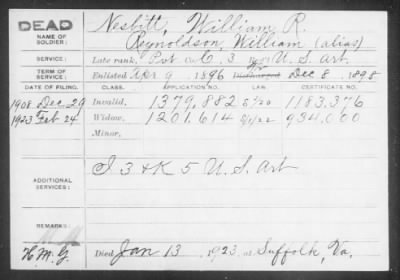 DEAD
NAME OF SOLDIER:
Nesbitt, William R.
Reynoldson, William (alias)
SERVICE:
Late rank, Pvt Co C, 3 U. S. Art.
TERM OF SERVICE:
Enlisted Apr 9 1896 Discharged Dec 8, 1898
DATE OF FILING. CLASS. APPLICATION NO. LAW. CERTIFICATE NO.
1908 Dec 29 Invalid, 1379,882 1183,376
1923 Feb 24 Widow, 1201,614 934,000
Minor,
ADDITIONAL SERVICES:
I 3 & K 5 U. S. Art
REMARKS:
H M G. Died Jan 13, 1923, at Suffolk, Va.